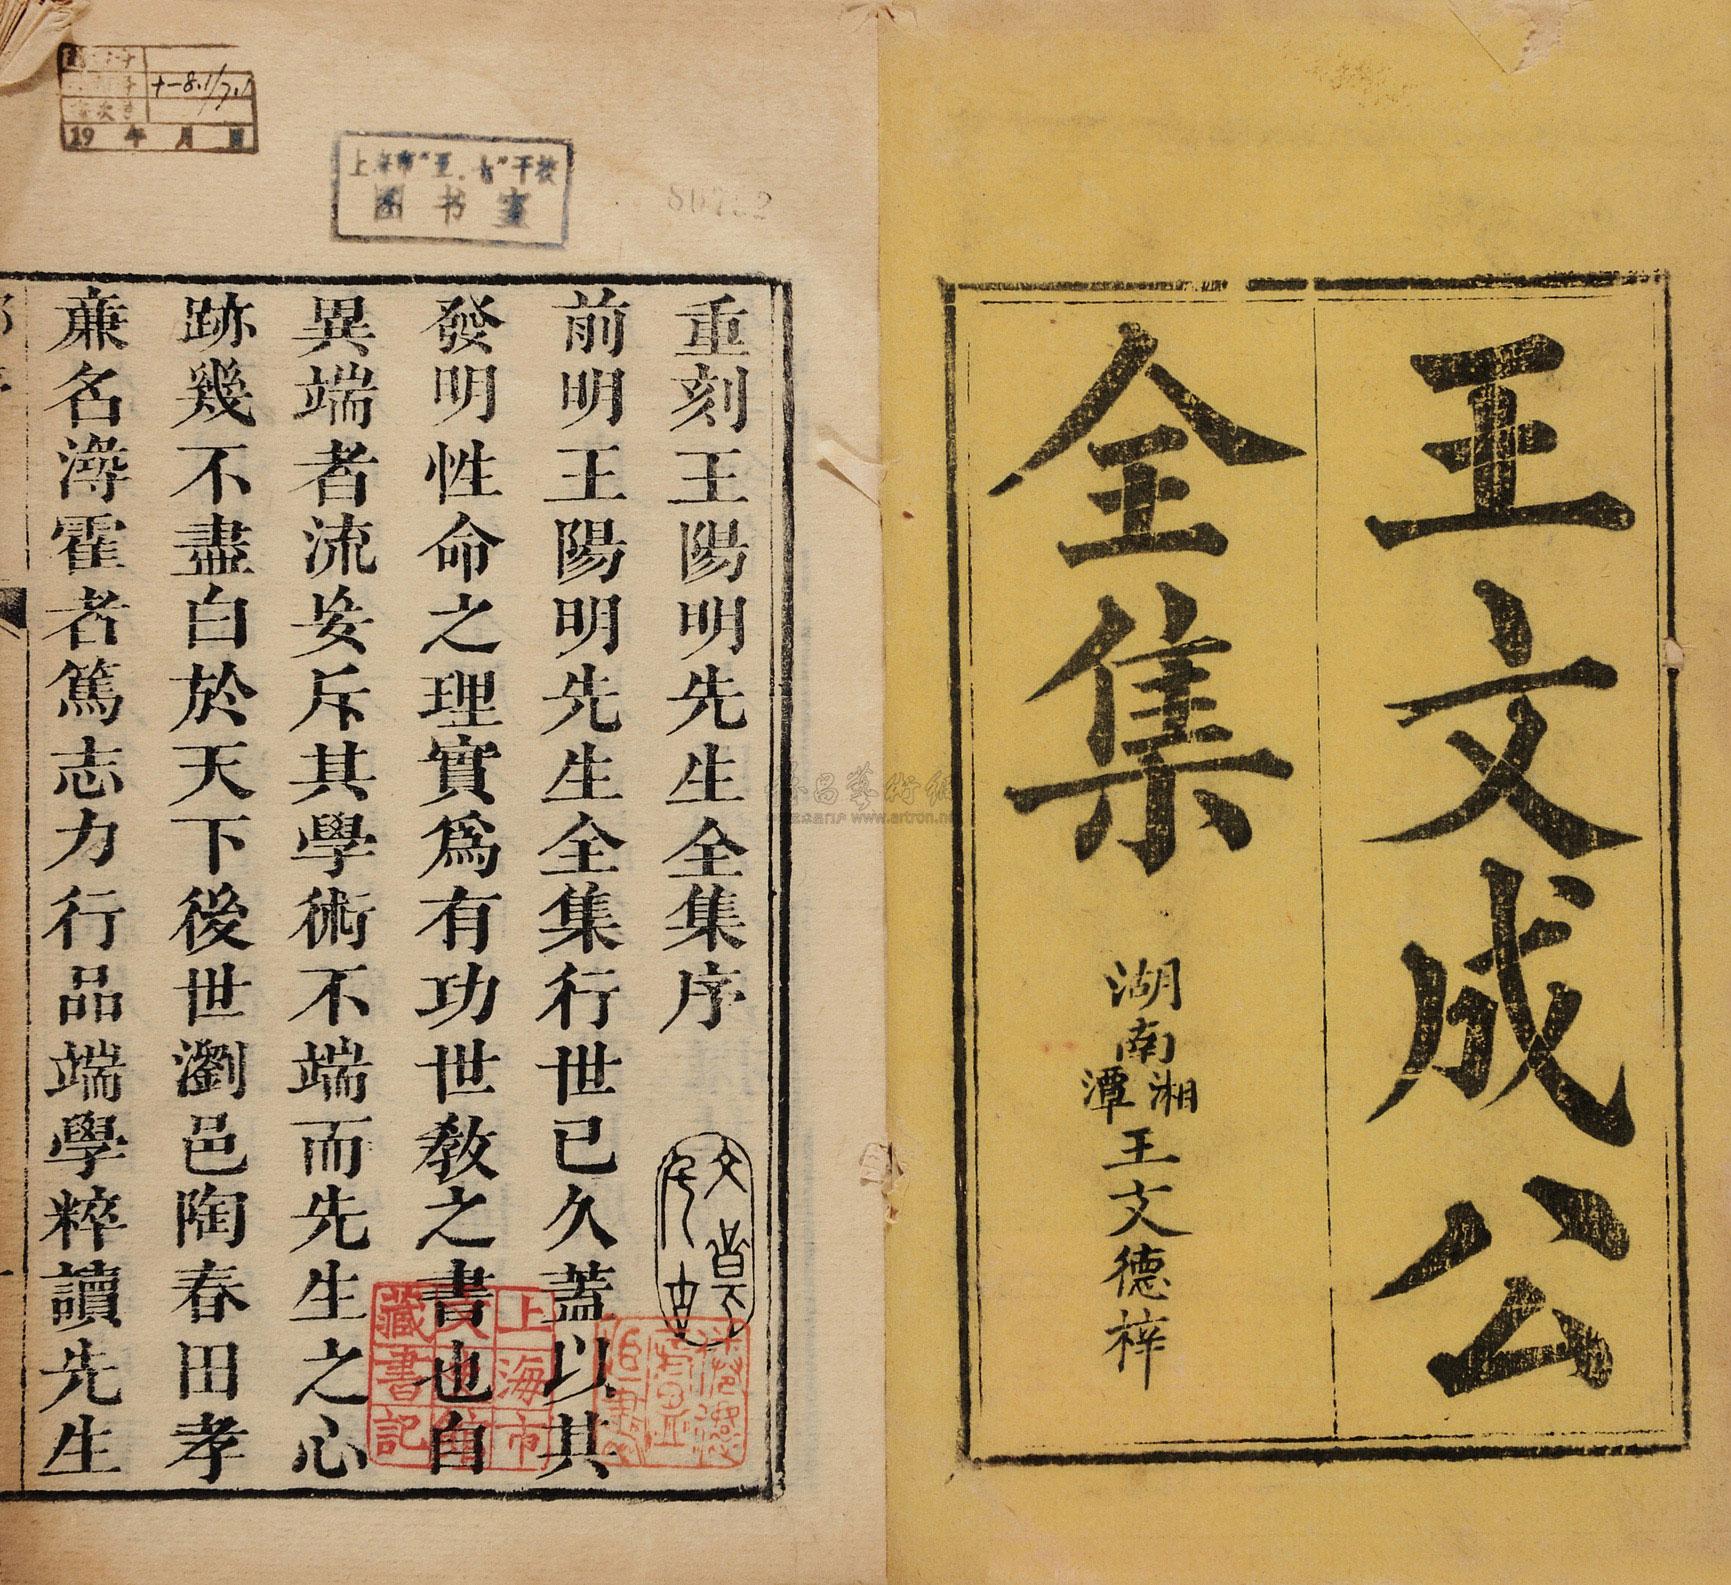 王文成公
全集
湖南湘潭王文德梓
重刻王陽明先生全集序
前明王陽明先生全集行世已久蓋以其
發明性命之理實爲有功世教之書也自
異端者流妄斥其學術不端而先生之心
跡幾不盡白於天下後世瀏邑陶春田孝
亷名潯霍者篤志力行品端學粹讀先生
图书室
19 年 月 日
上海市文
藏書記
www.artron.net